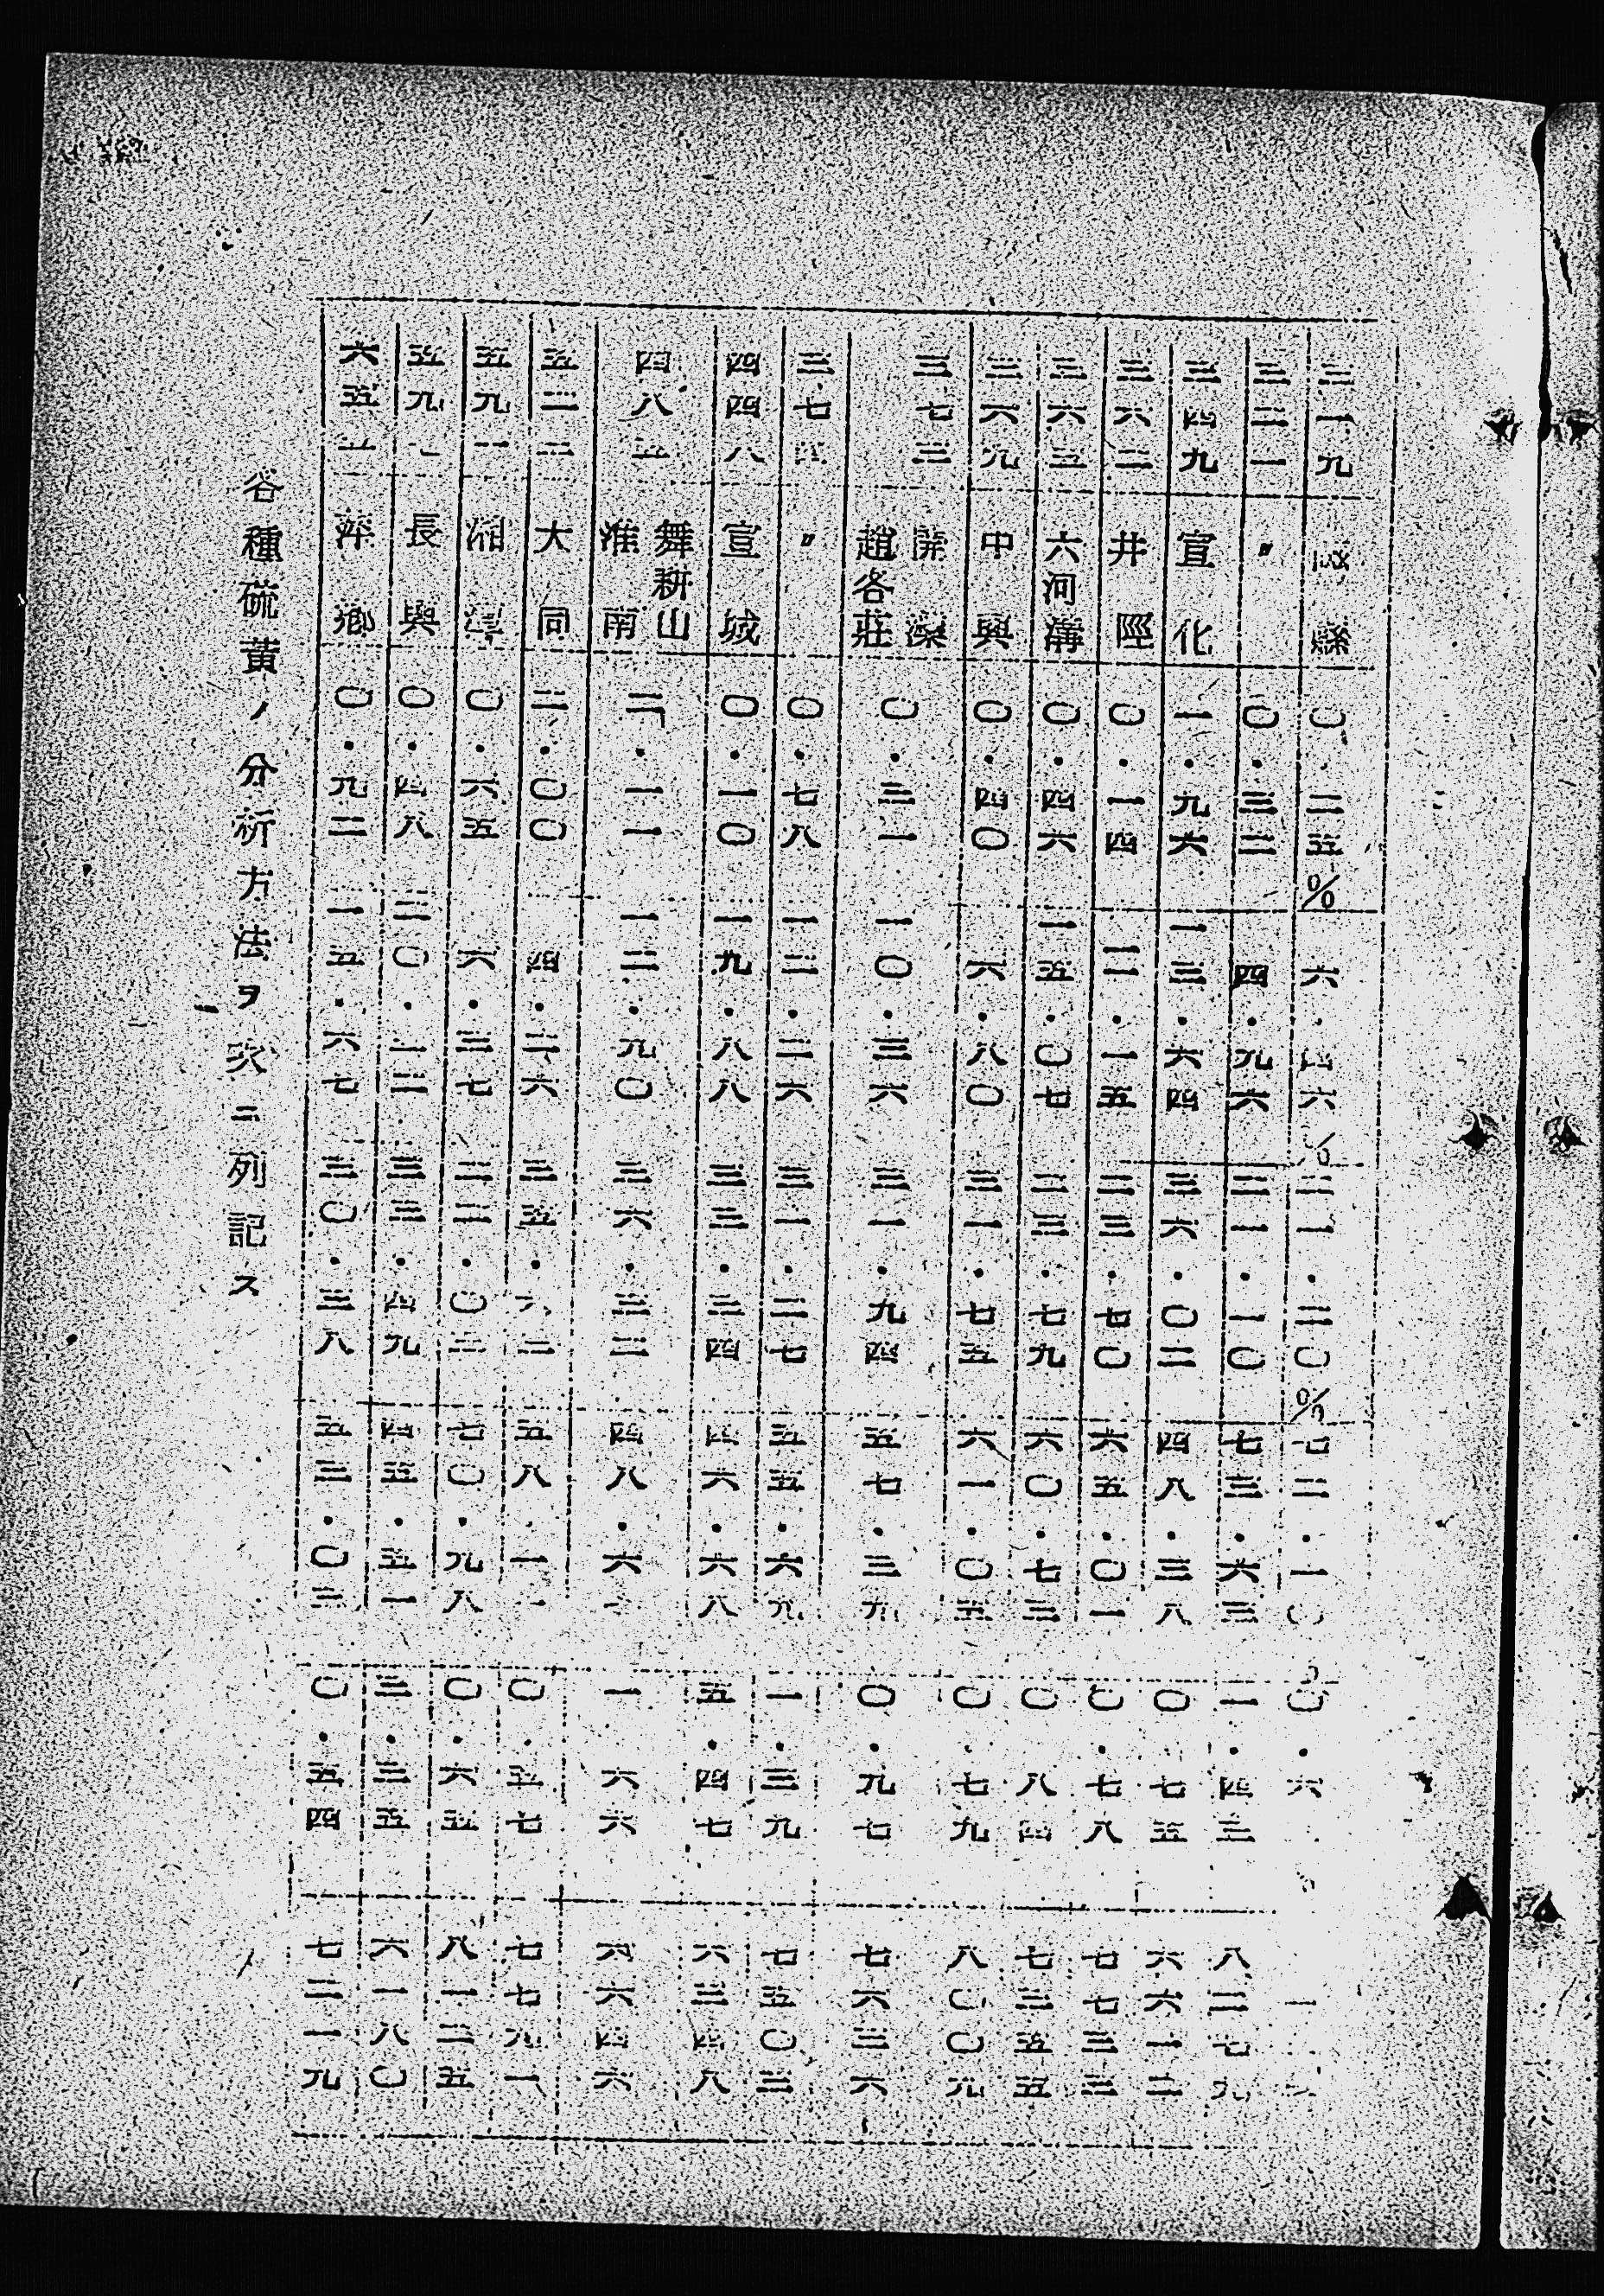 三一九 磁縣 〇・二五% 六・四六% 二一・二〇% 七二・一〇 〇・六
三二一 〃 〇・三二 四・九六 二一・一〇 七三・六三 一・四三 八二七九
三四九 宣化 一・九六 一三・六四 三六・〇二 四八・三八 〇・七五 六六一二
三六二 井陘 〇・一四 一一・一五 二三・七〇 六五・〇一 〇・七八 七七三三
三六五 六河溝 〇・四六 一五・〇七 二三・七九 六〇・七三 〇・八四 七三五五
三六九 中興 〇・四〇 六・八〇 三一・七五 六一・〇五 〇・七九 八〇〇九
三七三 開灤趙各莊 〇・三一 一〇・三六 三一・九四 五七・三九 〇・九七 七六三六
三七四 〃 〇・七八 一二・二六 三一・二七 五五・六九 一・三九 七五〇三
四四八 宣城 〇・一〇 一九・八八 三三・三四 四六・六八 五・四七 六三四八
四八五 淮南舞耕山 二・一一 一二・九〇 三六・三二 四八・六 一・六六 六六四六
五二二 大同 二・〇〇 四・二六 三五・六二 五八・一 〇・五七 七七九一
五九一 湘潭 〇・六五 六・三七 二二・〇 七〇・九八 〇・六五 八一二五
五九 長興 〇・四八 二〇・二二 三三・四九 四五・五一 三・三五 六一八〇
六五 萍鄉 〇・九二 一五・六七 三〇・三八 五三・〇三 〇・五四 七二一九
各種硫黃ノ分析方法ヲ次ニ列記ス